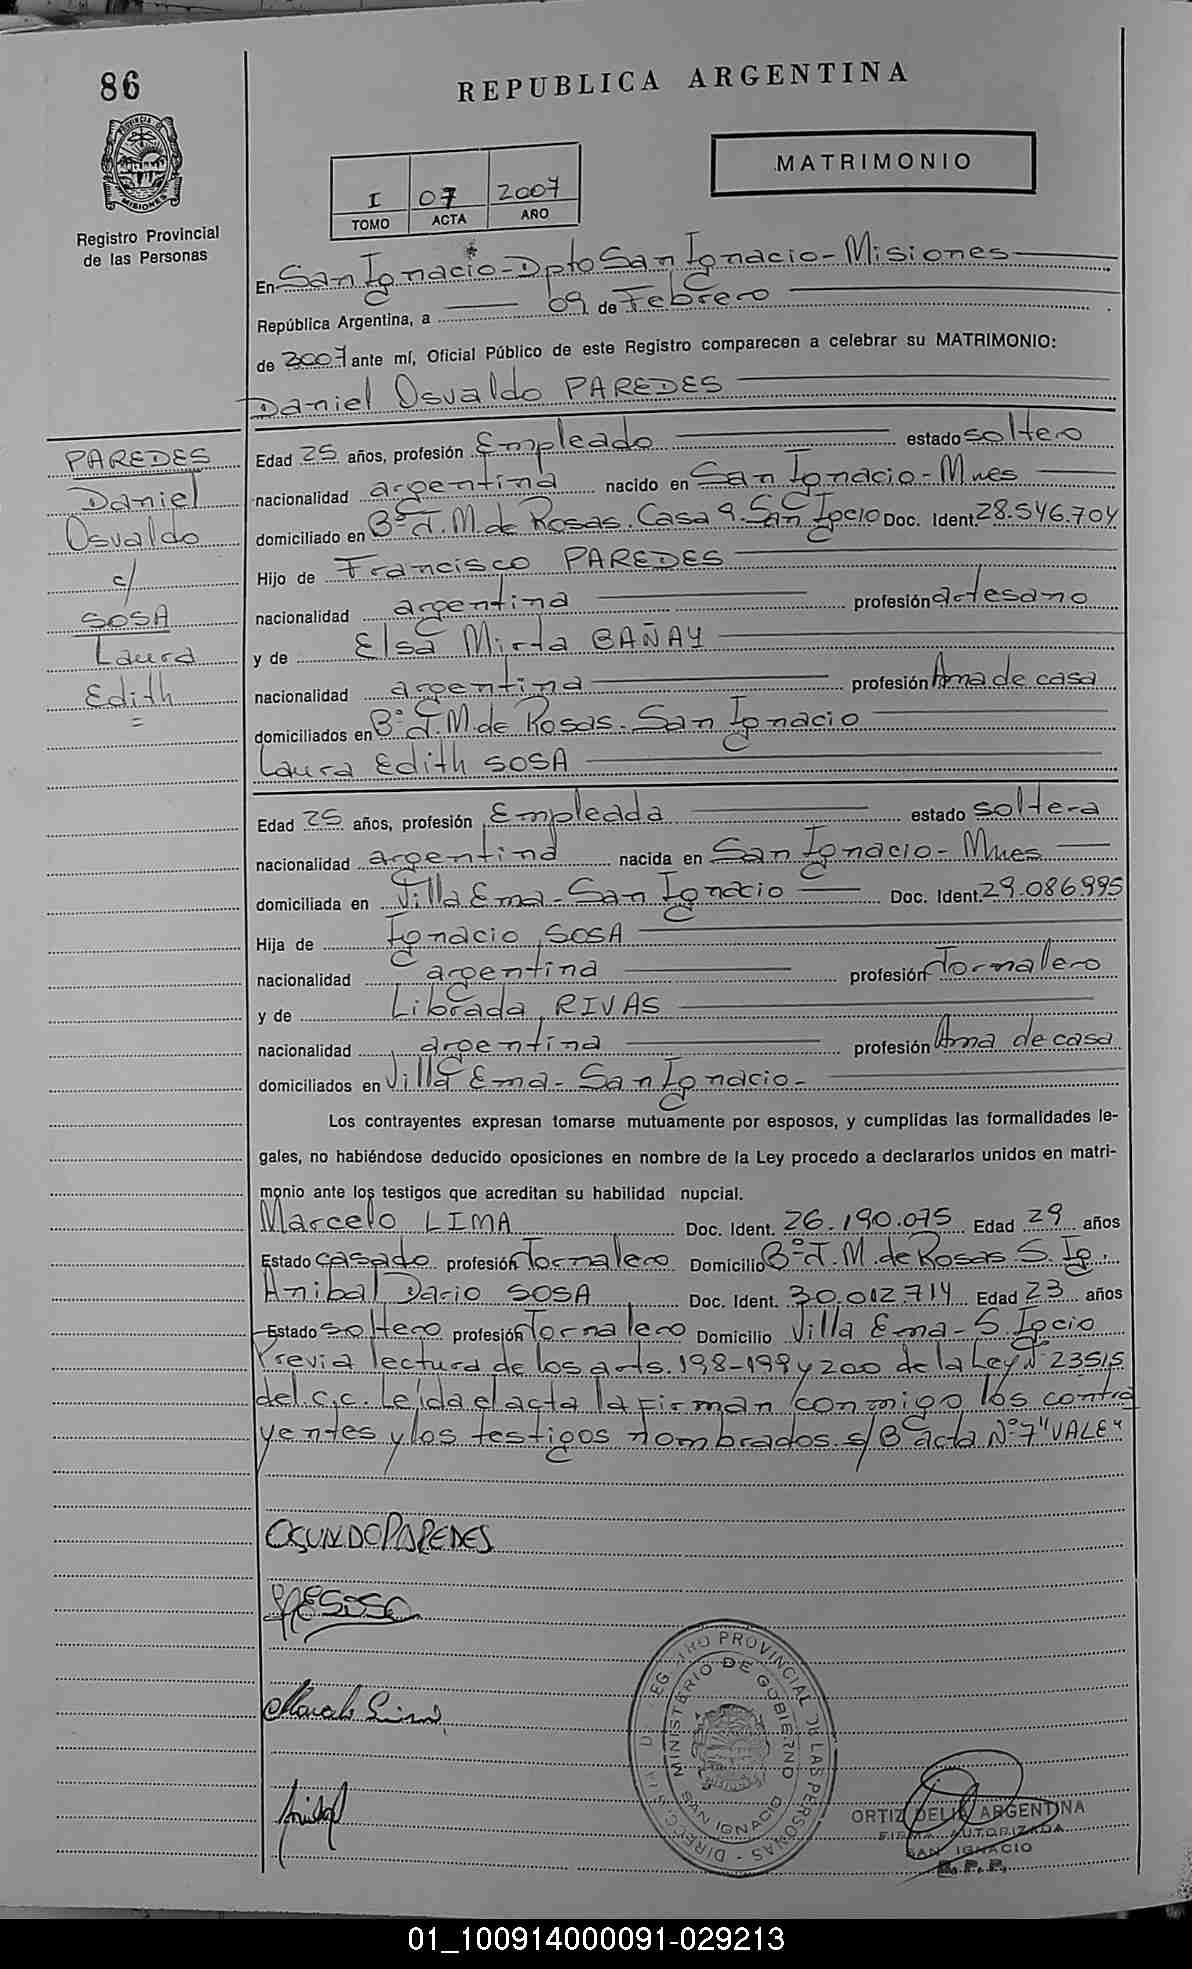 86
REPUBLICA ARGENTINA
MATRIMONIO
I 07 2007
TOMO ACTA AÑO
Registro Provincial
de las Personas
En San Ignacio - Dpto San Ignacio - Misiones
República Argentina, a 09 de Febrero
de 2007 ante mí, Oficial Público de este Registro comparecen a celebrar su MATRIMONIO:
Daniel Osvaldo PAREDES
PAREDES
Daniel
Osvaldo
c/
SOSA
Laura
Edith
=
Edad 25 años, profesión Empleado estado soltero
nacionalidad argentina nacido en San Ignacio - Mnes
domiciliado en Bº J.M. de Rosas. Casa 9. San Igcio Doc. Ident. 28.546.704
Hijo de Francisco PAREDES
nacionalidad argentina profesión artesano
y de Elsa Mirta BAÑAY
nacionalidad argentina profesión Ama de casa
domiciliados en Bº J.M. de Rosas. San Ignacio
Laura Edith SOSA
Edad 25 años, profesión Empleada estado soltera
nacionalidad argentina nacida en San Ignacio - Mnes
domiciliada en Villa Ema - San Ignacio Doc. Ident. 29.086.995
Hija de Ignacio SOSA
nacionalidad argentina profesión Jornalero
y de Librada RIVAS
nacionalidad argentina profesión Ama de casa
domiciliados en Villa Ema - San Ignacio -
Los contrayentes expresan tomarse mutuamente por esposos, y cumplidas las formalidades le-
gales, no habiéndose deducido oposiciones en nombre de la Ley procedo a declararlos unidos en matri-
monio ante los testigos que acreditan su habilidad nupcial.
Marcelo LIMA Doc. Ident. 26.190.075 Edad 29 años
Estado casado profesión Jornalero Domicilio Bº J.M. de Rosas S. Ig.
Anibal Dario SOSA Doc. Ident. 30.012.714 Edad 23 años
Estado soltero profesión Jornalero Domicilio Villa Ema - S. Igcio
Previa lectura de los arts. 198-199 y 200 de la Ley Nº 23515
del C.C. Leída el acta la firman conmigo los contra
yentes y los testigos nombrados. s/B acta Nº 7 "VALE"
OSVALDO PAREDES
SOSA
Marcelo Lima
Anibal
DIRECCION REGISTRO PROVINCIAL DE LAS PERSONAS
MINISTERIO DE GOBIERNO
SAN IGNACIO
ORTIZ DELIA ARGENTINA
FIRMA AUTORIZADA
SAN IGNACIO
R.P.P.
01_100914000091-029213